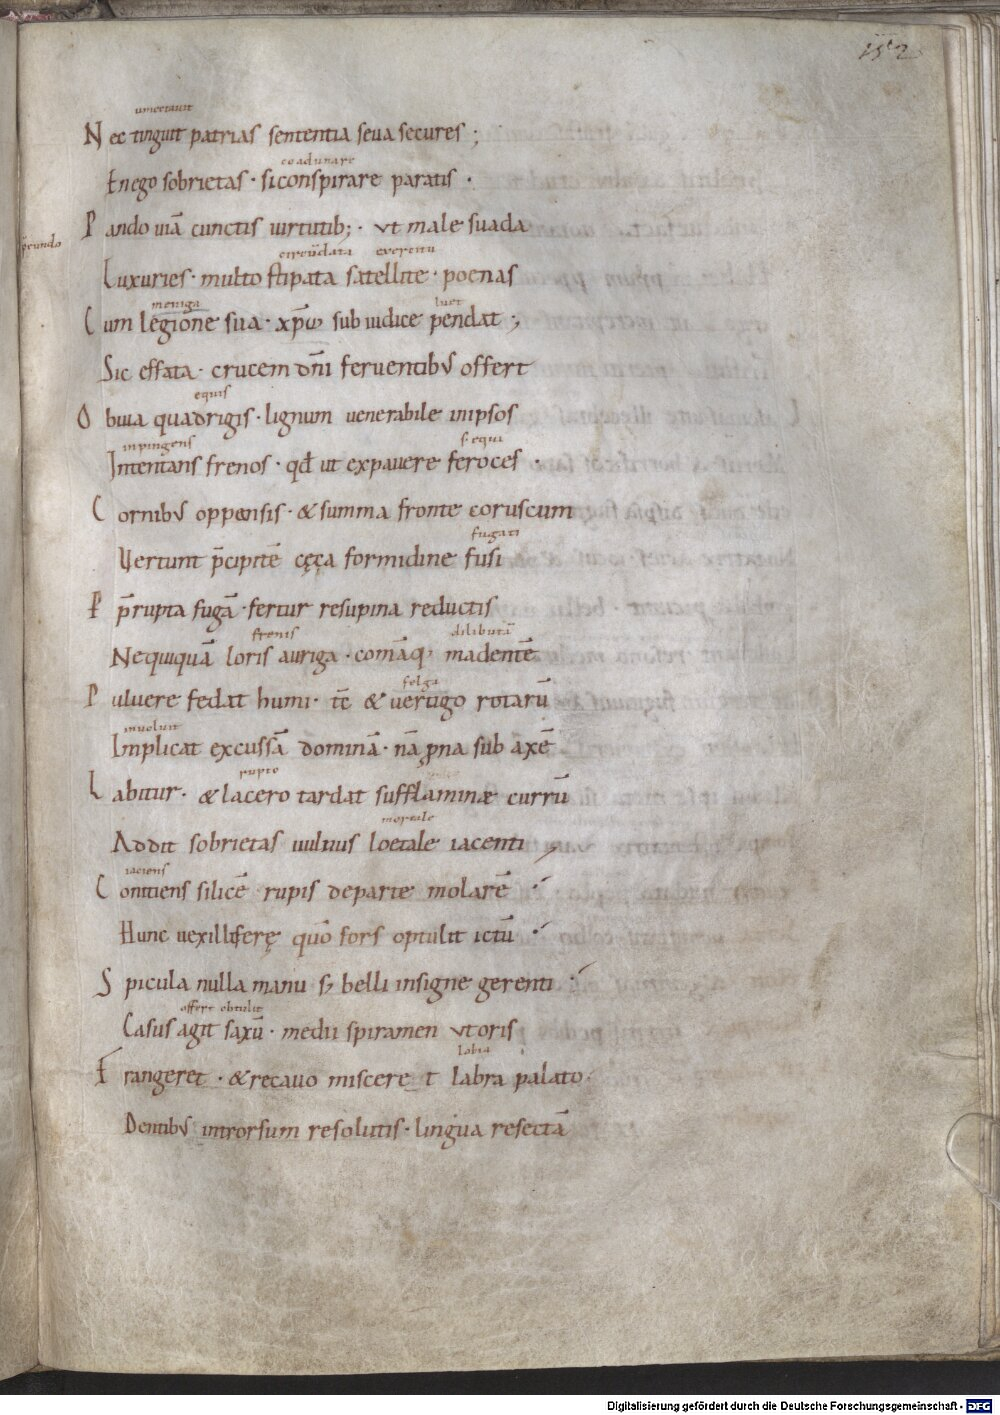 152
umectauit
Nec tinguit patrias sententia seua secures ;
coadunare
En ego sobrietas · si conspirare paratis ·
Pando uiā cunctis uirtutib; · ut male suada
circūdata
Luxuries · multo stipata satellite · poenas
meniga luet
Cum legione sua · xp̄o sub iudice pendat ;
Sic effata · crucem dn̄i feruentibus offert
equis
Obuia quadrigis · lignum uenerabile inipsos
inpingens s· equi
Intentans frenos · qđ ut expauere feroces ·
Cornibus oppansis · & summa fronte coruscum
fugati
Vertunt p̄cipitē cęca formidine fusi
P p̄rupta fugā · fertur resupina reductis
frenis dilibutā
Nequiquā loris auriga · comāq; madentē
felga
Puluere fedat humi · tc̄ & uertigo rotarū
inuoluit
Implicat excussā dominā · nā ꝓna sub axē
rupto
Labitur · & lacero tardat sufflamine currū
mortale
Addit sobrietas uulnus loetale iacenti ;
iaciens
Coniciens silicē rupis de parte molarē
Hunc uexilliferę quō fors optulit ictū
Spicula nulla manu s; belli insigne gerenti
offert obtulit
Casus agit saxū · medii spiramen ut oris
labia
Frangeret · & recauo misceret labra palato ·
Dentibus introrsum resolutis · lingua resectā
Digitalisierung gefördert durch die Deutsche Forschungsgemeinschaft - DFG